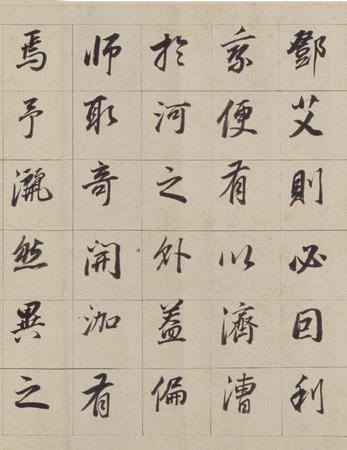 鄧艾則必回利
京便有以濟漕
於河之外益偏
師取奇開泇有
焉予灑然異之